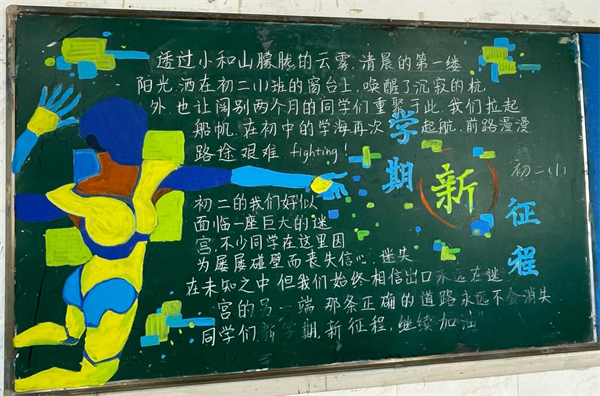 透过小和山朦胧的云雾,清晨的第一缕
阳光,洒在初二(1)班的窗台上,唤醒了沉寂的杭
外 也让阔别两个月的同学们重聚于此,我们拉起
船帆,在初中的学海再次 起航,前路漫漫
路途艰难 fighting!
学期
新
征程
初二(1)
初二的我们好似
面临一座巨大的迷
宫,不少同学在这里因
为屡屡碰壁而丧失信心,迷失
在未知之中,但我们始终相信出口永远在迷
宫的另一端 那条正确的道路永远不会消失
同学们 新学期,新征程,继续加油